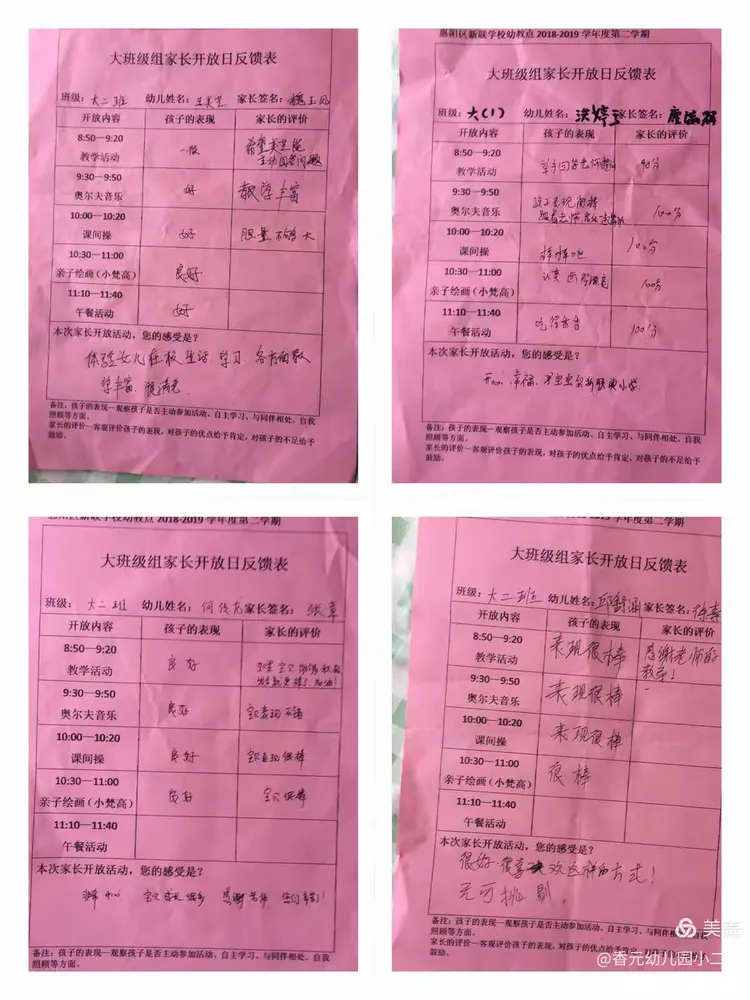 大班级组家长开放日反馈表
班级：大二班 幼儿姓名： 家长签名：
开放内容 孩子的表现 家长的评价
8:50—9:20
教学活动 一般
9:30—9:50
奥尔夫音乐 好 教学丰富
10:00—10:20
课间操 好 胆量不够大
10:30—11:00
亲子绘画(小梵高) 良好
11:10—11:40
午餐活动 好
本次家长开放活动，您的感受是?
体验女儿在校生活、学习、各方面教
学丰富、很满意
备注：孩子的表现—观察孩子是否主动参加活动、自主学习、与同伴相处、自我
照顾等方面。
家长的评价—客观评价孩子的表现，对孩子的优点给予肯定，对孩子的不足给予
鼓励。
惠阳区新联学校幼教点 2018-2019 学年度第二学期
大班级组家长开放日反馈表
班级：大(1) 幼儿姓名： 家长签名：
开放内容 孩子的表现 家长的评价
8:50—9:20
教学活动 90分
9:30—9:50
奥尔夫音乐 孩子表现很棒 100分
10:00—10:20
课间操 棒棒哒 100分
10:30—11:00
亲子绘画(小梵高) 认真 100分
11:10—11:40
午餐活动 吃得香香 100分
本次家长开放活动，您的感受是?
开心、幸福、
备注：孩子的表现—观察孩子是否主动参加活动、自主学习、与同伴相处、自我
照顾等方面。
家长的评价—客观评价孩子的表现，对孩子的优点给予肯定，对孩子的不足给予
鼓励。
惠阳区新联学校幼教点 2018-2019 学年度第二学期
大班级组家长开放日反馈表
班级：大二班 幼儿姓名： 家长签名：
开放内容 孩子的表现 家长的评价
8:50—9:20
教学活动 良好
9:30—9:50
奥尔夫音乐 良好 宝贝表现不错
10:00—10:20
课间操 良好 宝贝表现很棒
10:30—11:00
亲子绘画(小梵高) 良好 宝贝很棒
11:10—11:40
午餐活动
本次家长开放活动，您的感受是?
非常开心 宝贝成长很多 感谢老师 您们辛苦了!
备注：孩子的表现—观察孩子是否主动参加活动、自主学习、与同伴相处、自我
照顾等方面。
学年度第二学期
大班级组家长开放日反馈表
班级：大二班 幼儿姓名： 家长签名：
开放内容 孩子的表现 家长的评价
8:50—9:20
教学活动 表现很棒 感谢老师的
教学!
9:30—9:50
奥尔夫音乐 表现很棒
10:00—10:20
课间操 表现很棒
10:30—11:00
亲子绘画(小梵高) 很棒
11:10—11:40
午餐活动
本次家长开放活动，您的感受是?
很好、很喜欢这样的方式!
无可挑剔。
备注：孩子的表现—观察孩子是否主动参加活动、自主学习、与同伴相处、自我
照顾等方面。
家长的评价—客观评价孩子的表现，对孩子的优点给予肯定，
鼓励。
美篇
@香元幼儿园小二